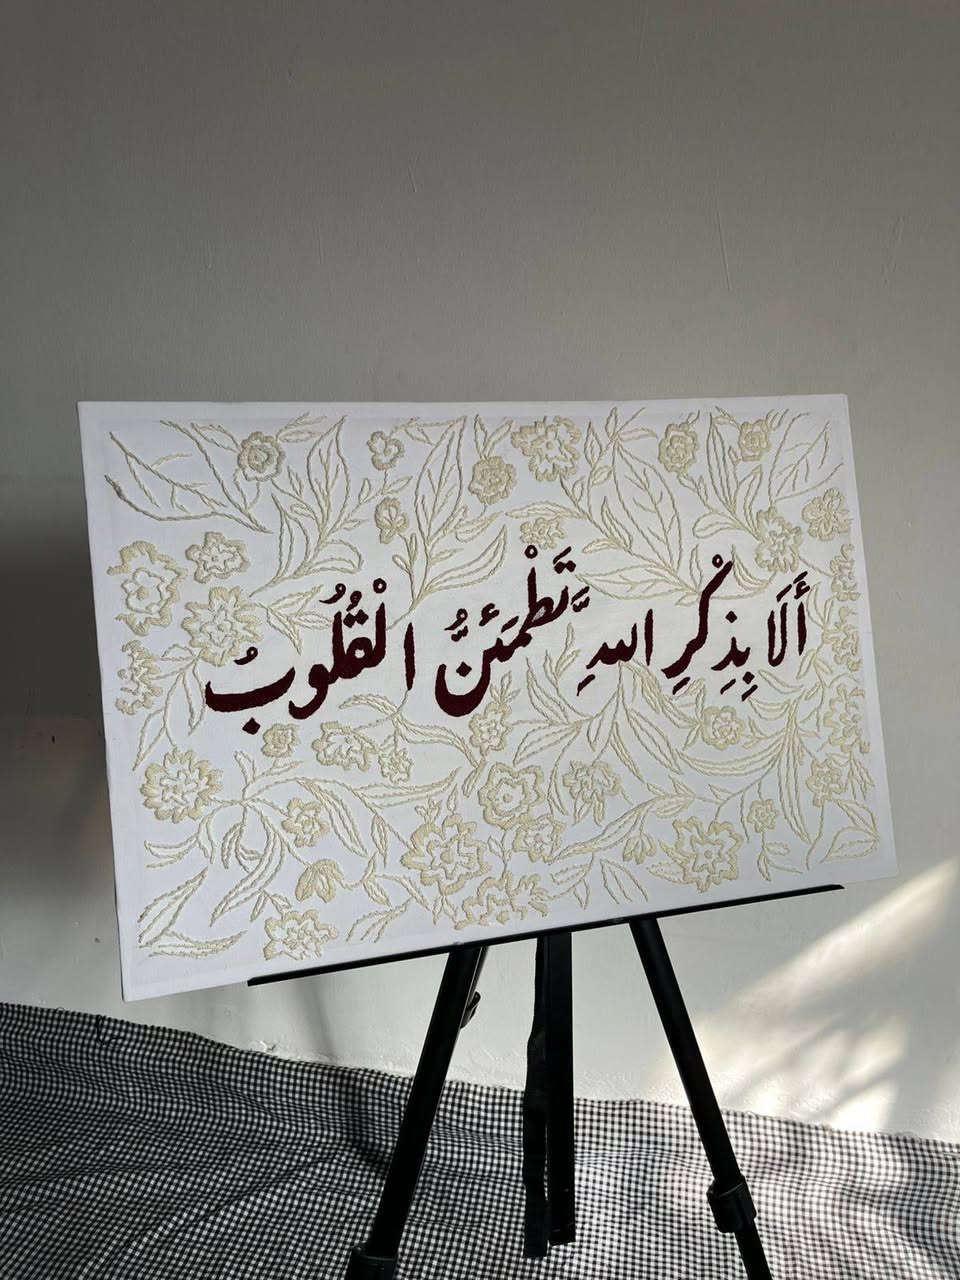 أَلَا بِذِكْرِ اللهِ تَطْمَئِنُّ الْقُلُوبُ